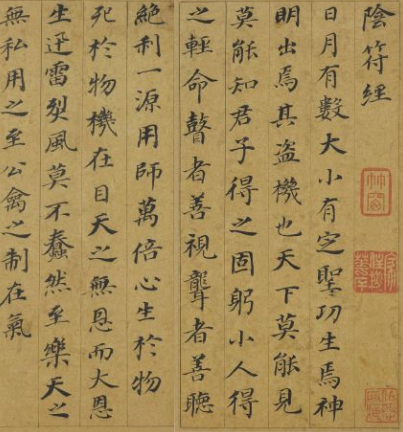 陰符經
日月有數大小有定聖功生焉神
明出焉其盜機也天下莫能見
莫能知君子得之固躬小人得
之輕命瞽者善視聾者善聽
絕利一源用師萬倍心生於物
死於物機在目天之無恩而大恩
生迅雷烈風莫不蠢然至樂天之
無私用之至公禽之制在氣